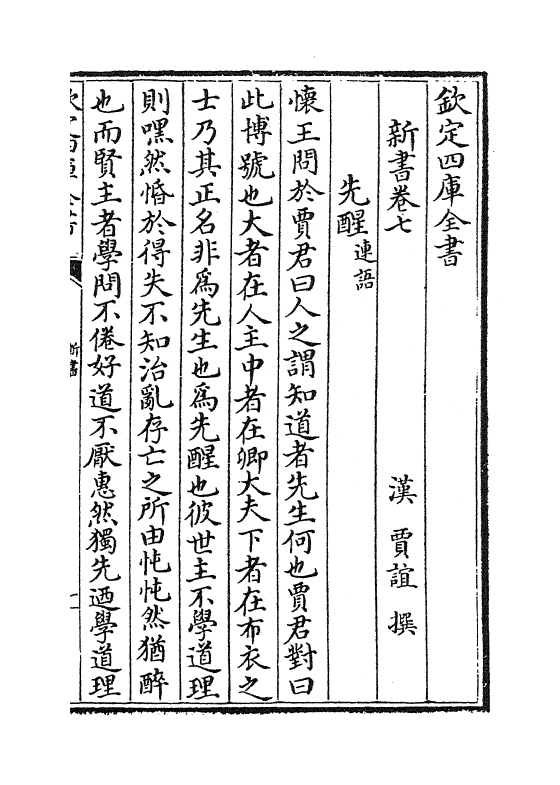 欽定四庫全書
新書卷七　漢　賈誼　撰
先醒連語
懷王問於賈君曰人之謂知道者先生何也賈君對曰
此博號也大者在人主中者在卿大夫下者在布衣之
士乃其正名非爲先生也爲先醒也彼世主不學道理
則嘿然惛於得失不知治亂存亡之所由忳忳然猶醉
也而賢主者學問不倦好道不厭惠然獨先迺學道理
新書